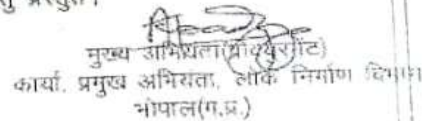 प्रस्तुत।
मुख्य अभियंता(प्रोक्युरमेंट)
कार्या. प्रमुख अभियंता, लोक निर्माण विभाग
भोपाल(म.प्र.)